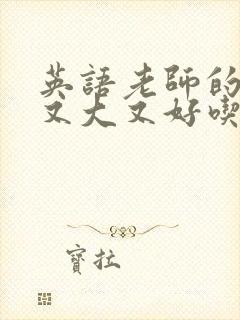 英語老師的
又大又好喫
寶拉